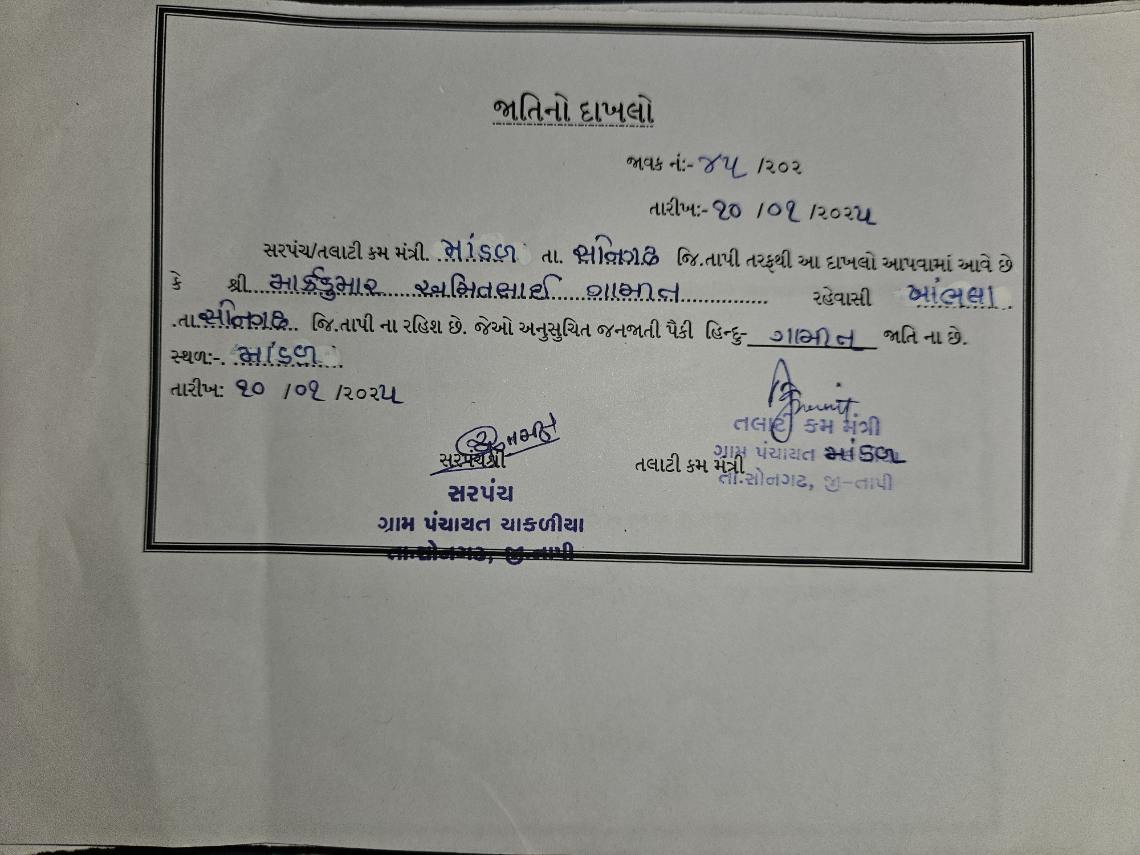 જાતિનો દાખલો
જાવક નં:- ૪૫ /૨૦૨
તારીખ:- ૧૦ /૦૧ /૨૦૨૫
સરપંચ/તલાટી કમ મંત્રી. માંડળ તા. સોનગઢ જિ.તાપી તરફથી આ દાખલો આપવામાં આવે છે
કે શ્રી. માર્કકુમાર અમિતભાઈ ગામીત રહેવાસી ખાંભલા
.તા. સોનગઢ.. જિ.તાપી ના રહિશ છે. જેઓ અનુસુચિત જનજાતી પૈકી હિન્દુ- ગામીત જાતિ ના છે.
સ્થળ:-. માંડળ
તારીખ: ૧૦ /૦૧ /૨૦૨૫
સરપંચશ્રી
સરપંચ
ગ્રામ પંચાયત ચાકળીયા
તા.સોનગઢ, જી.તાપી
તલાટી કમ મંત્રી
તલાટી કમ મંત્રી
ગ્રામ પંચાયત માંડળ
તા.સોનગઢ, જી-તાપી